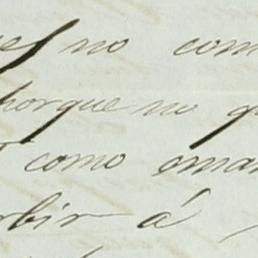 no com
porque no q
como eman
rbir á